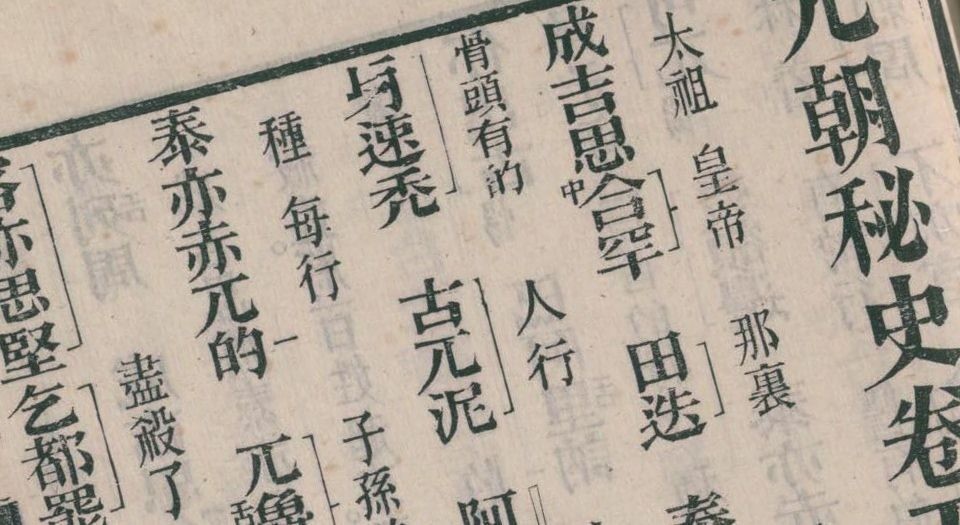 元朝秘史卷
太祖 皇帝 那裏
成吉思中合罕 田迭
骨頭有的 人行
速禿 古兀泥 阿
種 每行 子孫
泰亦赤兀的 兀魯
盡殺了
亦思堅 乞都罷